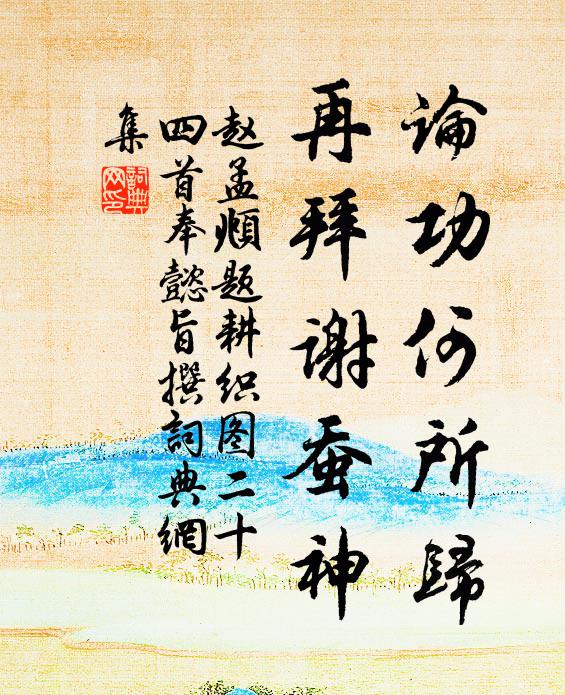 論功何所歸
再拜谢蚕神
赵孟頫题耕织图二十
四首奉懿旨撰詞典網
集
詞典
网印